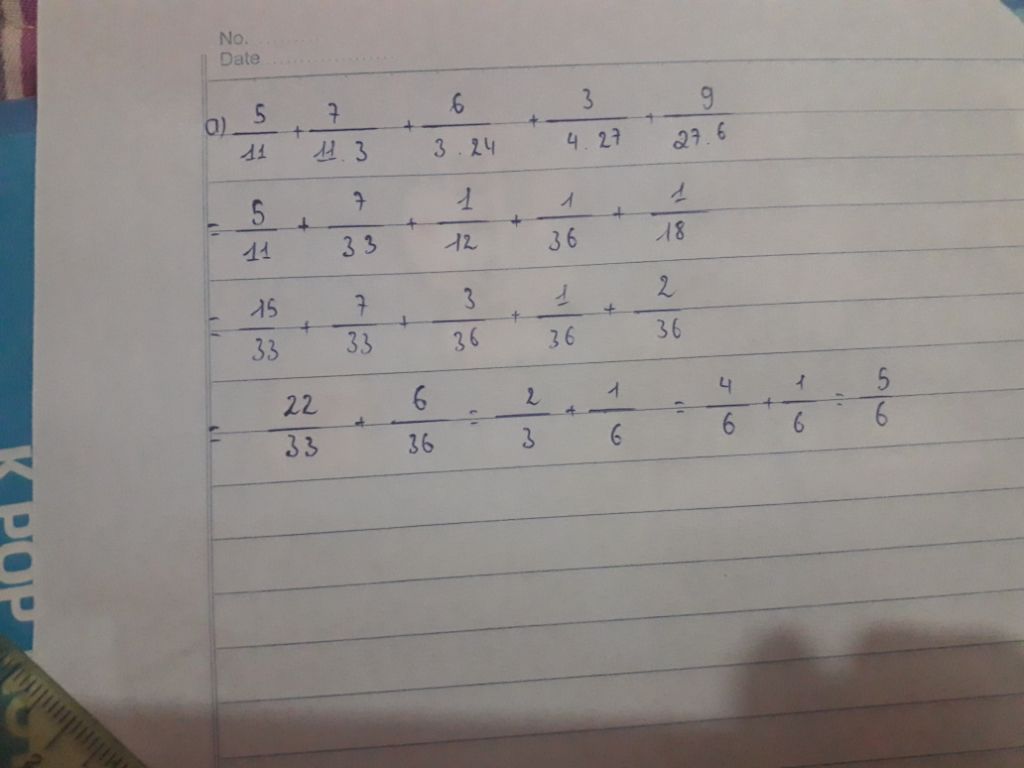 No. ..........
Date ....................
a) 5/11 + 7/11.3 + 6/3.24 + 3/4.27 + 9/27.6
= 5/11 + 7/33 + 1/12 + 1/36 + 1/18
= 15/33 + 7/33 + 3/36 + 1/36 + 2/36
= 22/33 + 6/36 = 2/3 + 1/6 = 4/6 + 1/6 = 5/6
K POP